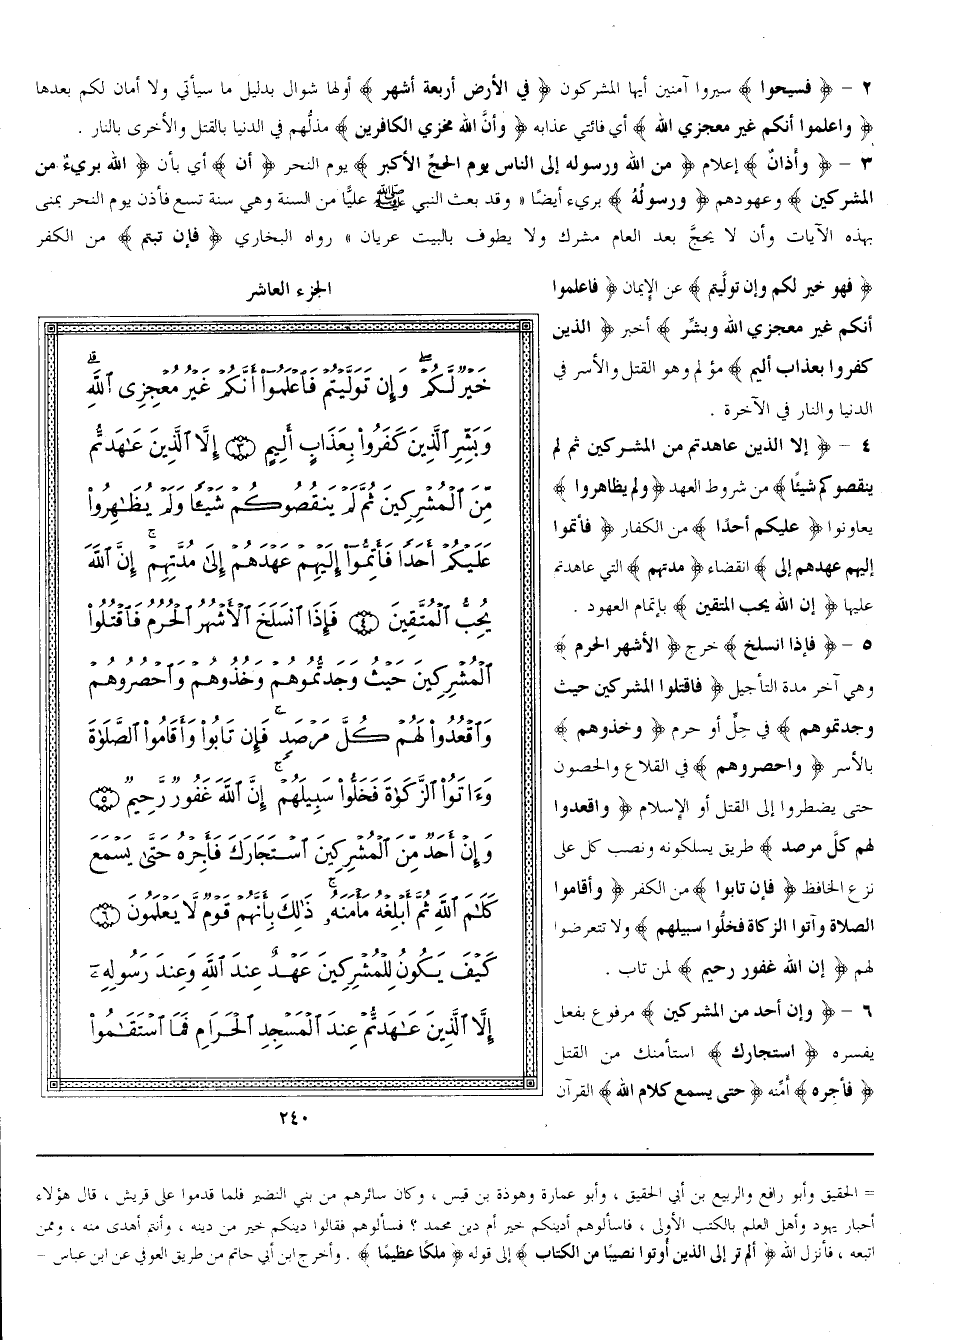 ٢ – ﴿ فسيحوا ﴾ سيروا آمنين أيها المشركون ﴿ في الأرض أربعة أشهر ﴾ أولها شوال بدليل ما سيأتي ولا أمان لكم بعدها
﴿ واعلموا أنكم غير معجزي الله ﴾ أي فائتي عذابه ﴿ وأنَّ الله مخزي الكافرين ﴾ مذلُّهم في الدنيا بالقتل والأخرى بالنار .
٣ – ﴿ وأذانٌ ﴾ إعلام ﴿ من الله ورسوله إلى الناس يوم الحجِّ الأكبر ﴾ يوم النحر ﴿ أن ﴾ أي بأن ﴿ الله بريءٌ من
المشركين ﴾ وعهودهم ﴿ ورسولُهُ ﴾ بريء أيضًا « وقد بعث النبي ﷺ عليًّا من السنة وهي سنة تسع فأذن يوم النحر بمنى
بهذه الآيات وأن لا يحجَّ بعد العام مشرك ولا يطوف بالبيت عريان » رواه البخاري ﴿ فإن تبتم ﴾ من الكفر
﴿ فهو خير لكم وإن تولَّيتم ﴾ عن الإيمان ﴿ فاعلموا
أنكم غير معجزي الله وبشِّر ﴾ أخبر ﴿ الذين
كفروا بعذاب أليم ﴾ مؤلم وهو القتل والأسر في
الدنيا والنار في الآخرة .
٤ – ﴿ إلا الذين عاهدتم من المشركين ثم لم
ينقصوكم شيئًا ﴾ من شروط العهد ﴿ ولم يظاهروا ﴾
يعاونوا ﴿ عليكم أحدًا ﴾ من الكفار ﴿ فأتموا
إليهم عهدهم إلى ﴾ انقضاء ﴿ مدتهم ﴾ التي عاهدتم
عليها ﴿ إن الله يحب المتقين ﴾ بإتمام العهود .
٥ – ﴿ فإذا انسلخ ﴾ خرج ﴿ الأشهر الحرم ﴾
وهي آخر مدة التأجيل ﴿ فاقتلوا المشركين حيث
وجدتموهم ﴾ في حِلٍّ أو حرم ﴿ وخذوهم ﴾
بالأسر ﴿ واحصروهم ﴾ في القلاع والحصون
حتى يضطروا إلى القتل أو الإسلام ﴿ واقعدوا
لهم كلَّ مرصد ﴾ طريق يسلكونه ونصب كل على
نزع الخافظ ﴿ فإن تابوا ﴾ من الكفر ﴿ وأقاموا
الصلاة وآتوا الزكاة فخلُّوا سبيلهم ﴾ ولا تتعرضوا
لهم ﴿ إن الله غفور رحيم ﴾ لمن تاب .
٦ – ﴿ وإن أحد من المشركين ﴾ مرفوع بفعل
يفسره ﴿ استجارك ﴾ استأمنك من القتل
﴿ فأجره ﴾ أمِّنه ﴿ حتى يسمع كلام الله ﴾ القرآن
الجزء العاشر
خَيۡرٌ لَّكُمۡۖ وَإِن تَوَلَّيۡتُمۡ فَٱعۡلَمُوٓاْ أَنَّكُمۡ غَيۡرُ مُعۡجِزِى ٱللَّهِۗ
وَبَشِّرِ ٱلَّذِينَ كَفَرُواْ بِعَذَابٍ أَلِيمٍ ٣ إِلَّا ٱلَّذِينَ عَٰهَدتُّم
مِّنَ ٱلۡمُشۡرِكِينَ ثُمَّ لَمۡ يَنقُصُوكُمۡ شَيۡـًٔا وَلَمۡ يُظَٰهِرُواْ
عَلَيۡكُمۡ أَحَدًا فَأَتِمُّوٓاْ إِلَيۡهِمۡ عَهۡدَهُمۡ إِلَىٰ مُدَّتِهِمۡۚ إِنَّ ٱللَّهَ
يُحِبُّ ٱلۡمُتَّقِينَ ٤ فَإِذَا ٱنسَلَخَ ٱلۡأَشۡهُرُ ٱلۡحُرُمُ فَٱقۡتُلُواْ
ٱلۡمُشۡرِكِينَ حَيۡثُ وَجَدتُّمُوهُمۡ وَخُذُوهُمۡ وَٱحۡصُرُوهُمۡ
وَٱقۡعُدُواْ لَهُمۡ كُلَّ مَرۡصَدٍۚ فَإِن تَابُواْ وَأَقَامُواْ ٱلصَّلَوٰةَ
وَءَاتَوُاْ ٱلزَّكَوٰةَ فَخَلُّواْ سَبِيلَهُمۡۚ إِنَّ ٱللَّهَ غَفُورٌ رَّحِيمٌ ٥
وَإِنۡ أَحَدٌ مِّنَ ٱلۡمُشۡرِكِينَ ٱسۡتَجَارَكَ فَأَجِرۡهُ حَتَّىٰ يَسۡمَعَ
كَلَٰمَ ٱللَّهِ ثُمَّ أَبۡلِغۡهُ مَأۡمَنَهُۥۚ ذَٰلِكَ بِأَنَّهُمۡ قَوۡمٌ لَّا يَعۡلَمُونَ ٦
كَيۡفَ يَكُونُ لِلۡمُشۡرِكِينَ عَهۡدٌ عِندَ ٱللَّهِ وَعِندَ رَسُولِهِۦٓ
إِلَّا ٱلَّذِينَ عَٰهَدتُّمۡ عِندَ ٱلۡمَسۡجِدِ ٱلۡحَرَامِۖ فَمَا ٱسۡتَقَٰمُواْ
٢٤٠
= الحقيق وأبو رافع والربيع بن أبي الحقيق ، وأبو عمارة وهوذة بن قيس ، وكان سائرهم من بني النضير فلما قدموا على قريش ، قال هؤلاء
أحبار يهود وأهل العلم بالكتب الأولى ، فاسألوهم أدينكم خير أم دين محمد ؟ فسألوهم فقالوا دينكم خير من دينه ، وأنتم أهدى منه ، وممن
اتبعه ، فأنزل الله ﴿ ألم تر إلى الذين أُوتوا نصيبًا من الكتاب ﴾ إلى قوله ﴿ ملكًا عظيمًا ﴾ . وأخرج ابن أبي حاتم من طريق العوفي عن ابن عباس –